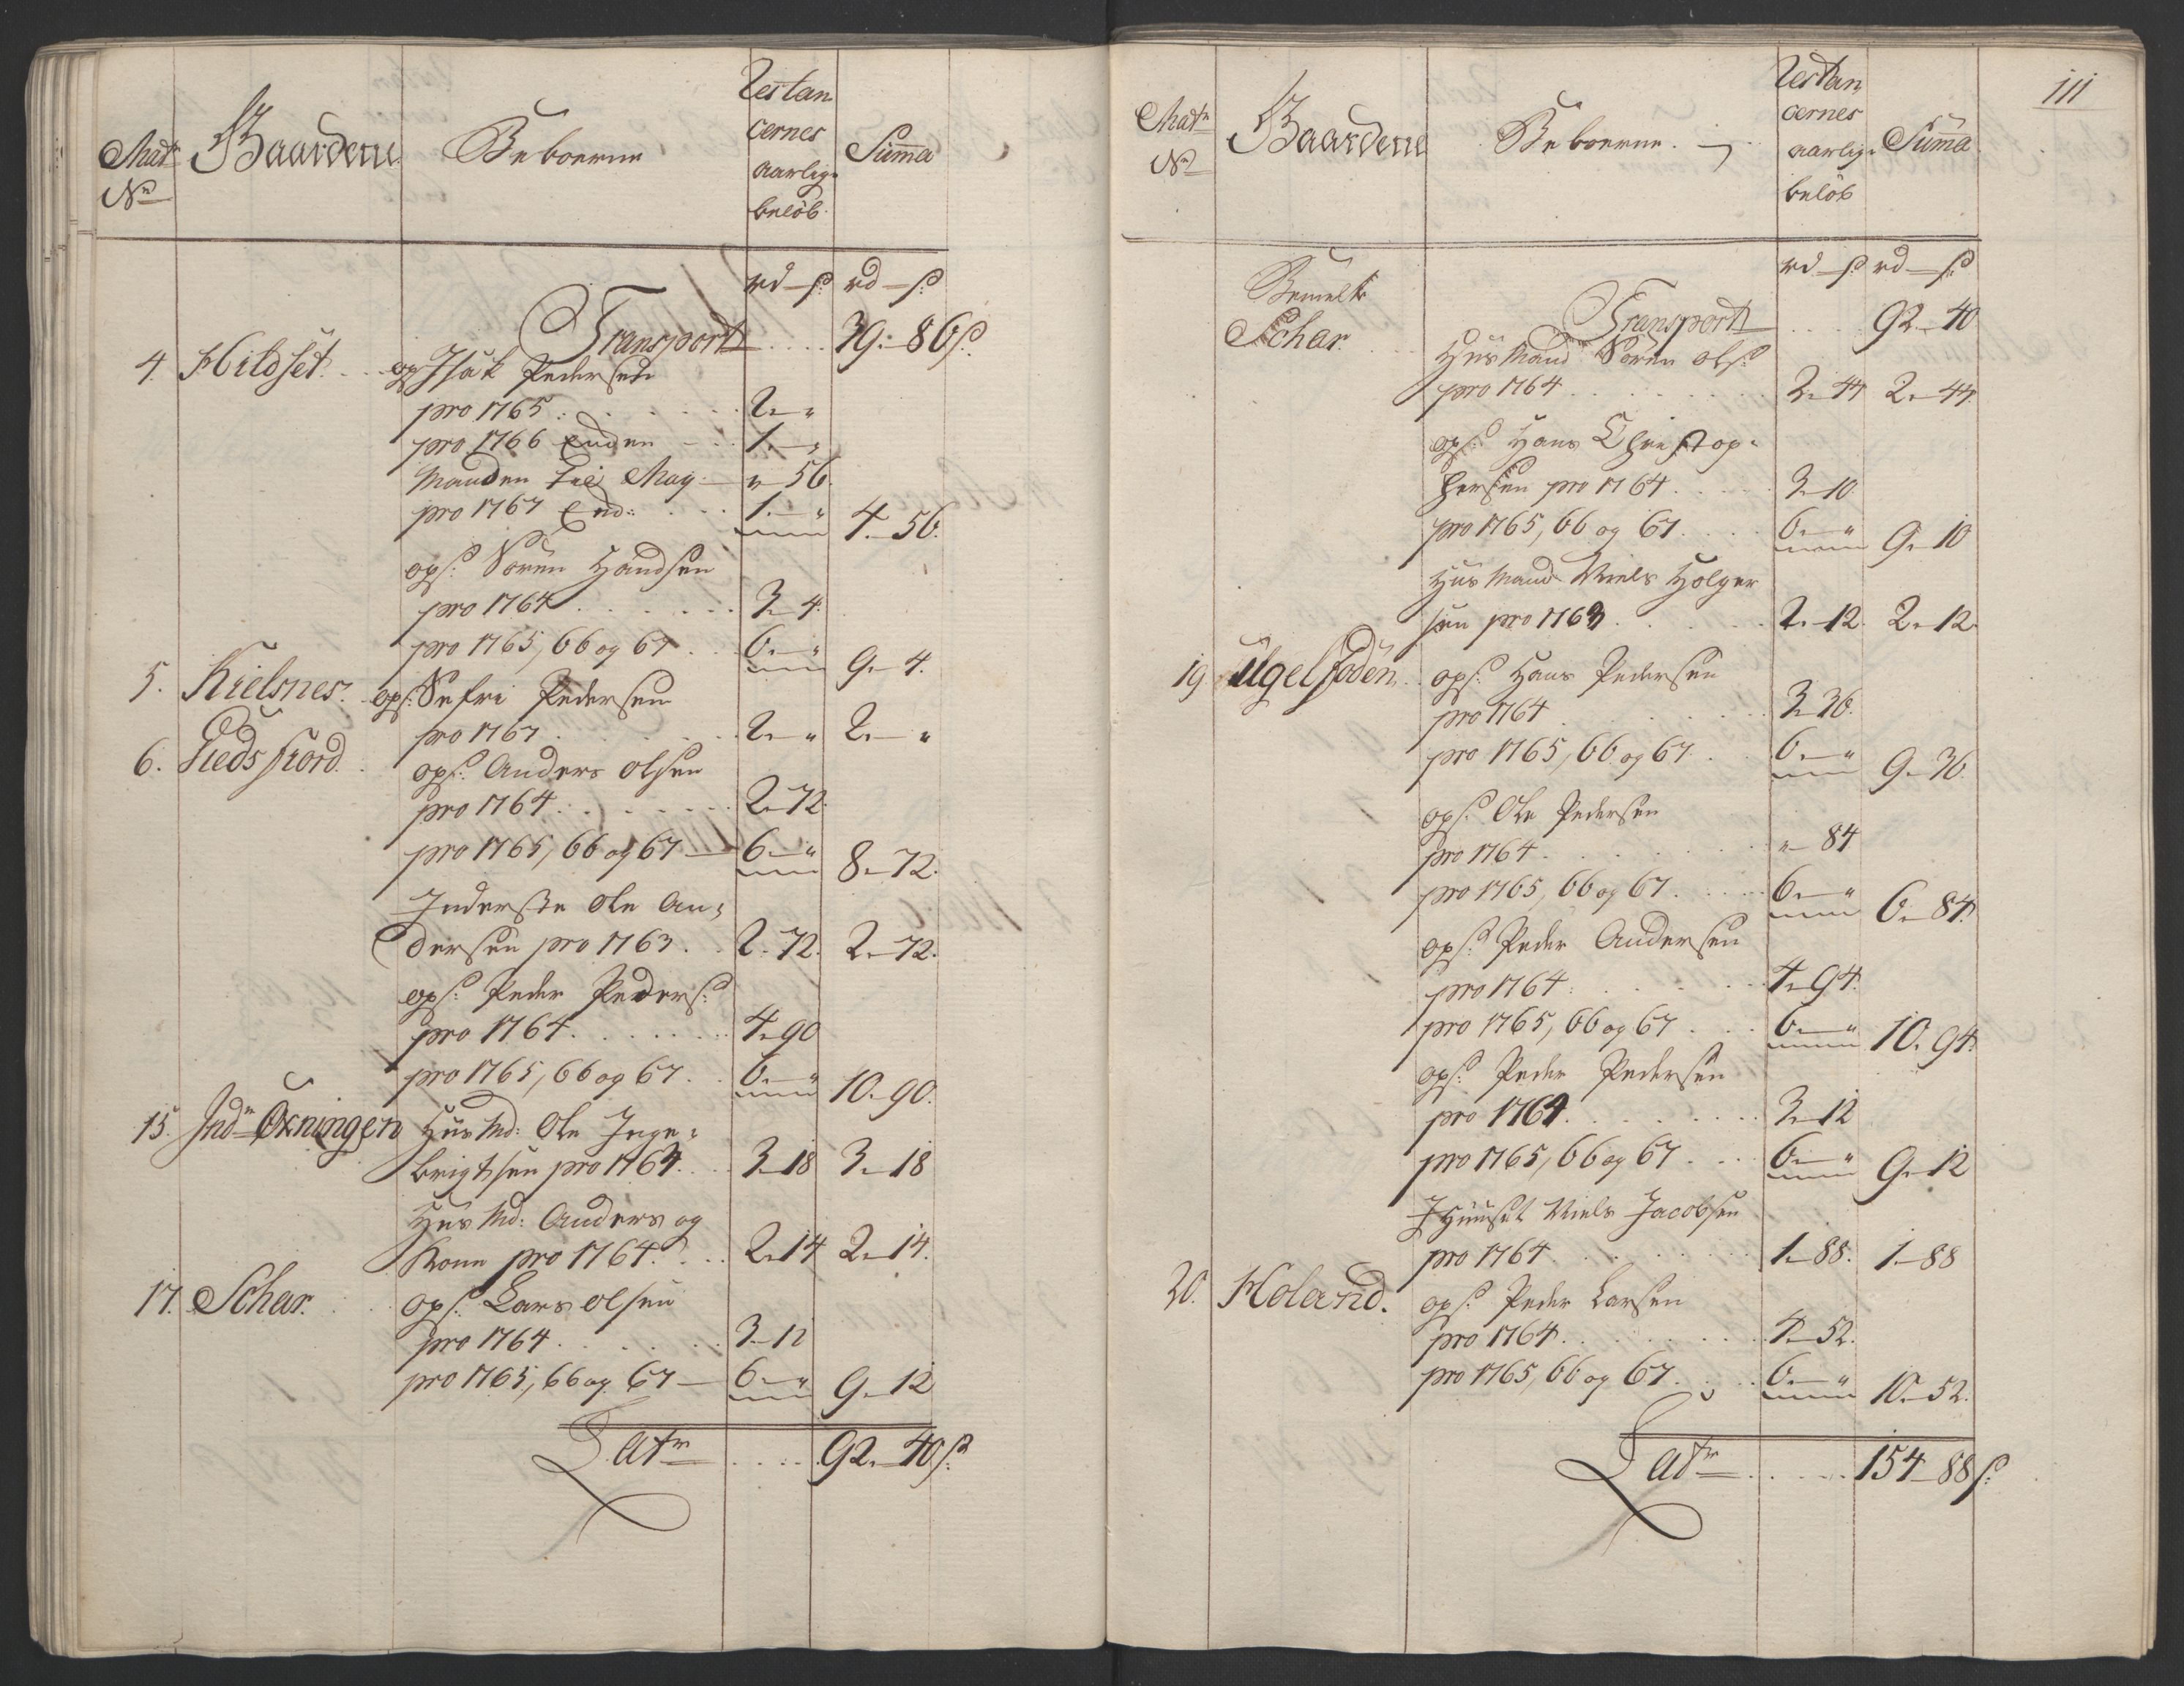 Matr
No
Gaardene
Beboerne
Restan
cernes
aarlige
beløb.
Summa
rd — s: rd — s:
Transport .... 39: 86 s.
4. Hildset. .. op Isak Pedersen
pro 1765 . . . . 2. — "
pro 1766 Enden . . 1. — "
Manden til Mag: — " — 56.
pro 1767 End: . . . 1. — " 4. — 56.
ops: Søren Handsen
pro 1764 . . . . . 3 — 4.
pro 1765, 66 og 67 . . 6. — " 9. — 4.
5. Kielsnes. ops: Sefri Pedersen
pro 1767 . . . . 2. — " 2. — "
6. Giedsfiord. . ops: Anders Olsen
pro 1764 . . . . . 2. — 72.
pro 1765, 66 og 67 — 6. — " 8. — 72.
Inderste Ole An:
dersen pro 1763 . . 2. — 72. 2. — 72.
ops: Peder Peders:
pro 1764 . . . . . 4. 90
pro 1765, 66 og 67 . . 6. — " 10. 90.
15. Indr Oxningen Huusmd: Ole Inge:
brigtsen pro 1764 . . 3 18 3. — 18
Huusmd: Anders og
Kone pro 1764 . . . 2. 14 2. — 14.
17. Schar. . . ops: Lars Olsen
pro 1764 . . . . . 3. — 12
pro 1765, 66 og 67 — 6. — " 9. — 12
Latr .... 92. — 40 s:
111
Matr
No
Gaardene
Beboerne.
Restan
cernes
aarlige
beløb
Summa
rd — s: rd — s:
Bemelte
Schar. . .
Transport . . . . 92. — 40
Huusmand Søren Ols:
pro 1764 . . . . . 2. 44 2. — 44.
ops: Hans Christop:
hersen pro 1764 . . . 3. 10.
pro 1765, 66 og 67 . . . 6. — " 9. — 10
Huusmand Niels Holger
sen pro 1763 . . . . 2. — 12. 2. — 12.
19 Ulgelfoden . ops: Hans Pedersen
pro 1764 . . . . . 3 36.
pro 1765, 66 og 67 . . 6. — " 9. — 36.
ops: Ole Pedersen
pro 1764 . . . . . " — 84
pro 1765, 66 og 67 . . . 6. — " 6. — 84.
ops: Peder Andersen
pro 1764 . . . . . 4. 94.
pro 1765, 66 og 67 . . . 6. — " 10. 94.
ops: Peder Pedersen
pro 1764 . . . . . 3 — 12
pro 1765, 66 og 67 . . . 6. — " 9. — 12
I Huuset Niels Jacobsen
pro 1764 . . . . . 1. — 88. 1. — 88
20. Holand. ops: Peder Larsen
pro 1764 . . . . . 4. — 52.
pro 1765, 66 og 67 . . . 6. — " 10. — 52.
Latr . . . . 154 — 88 s: